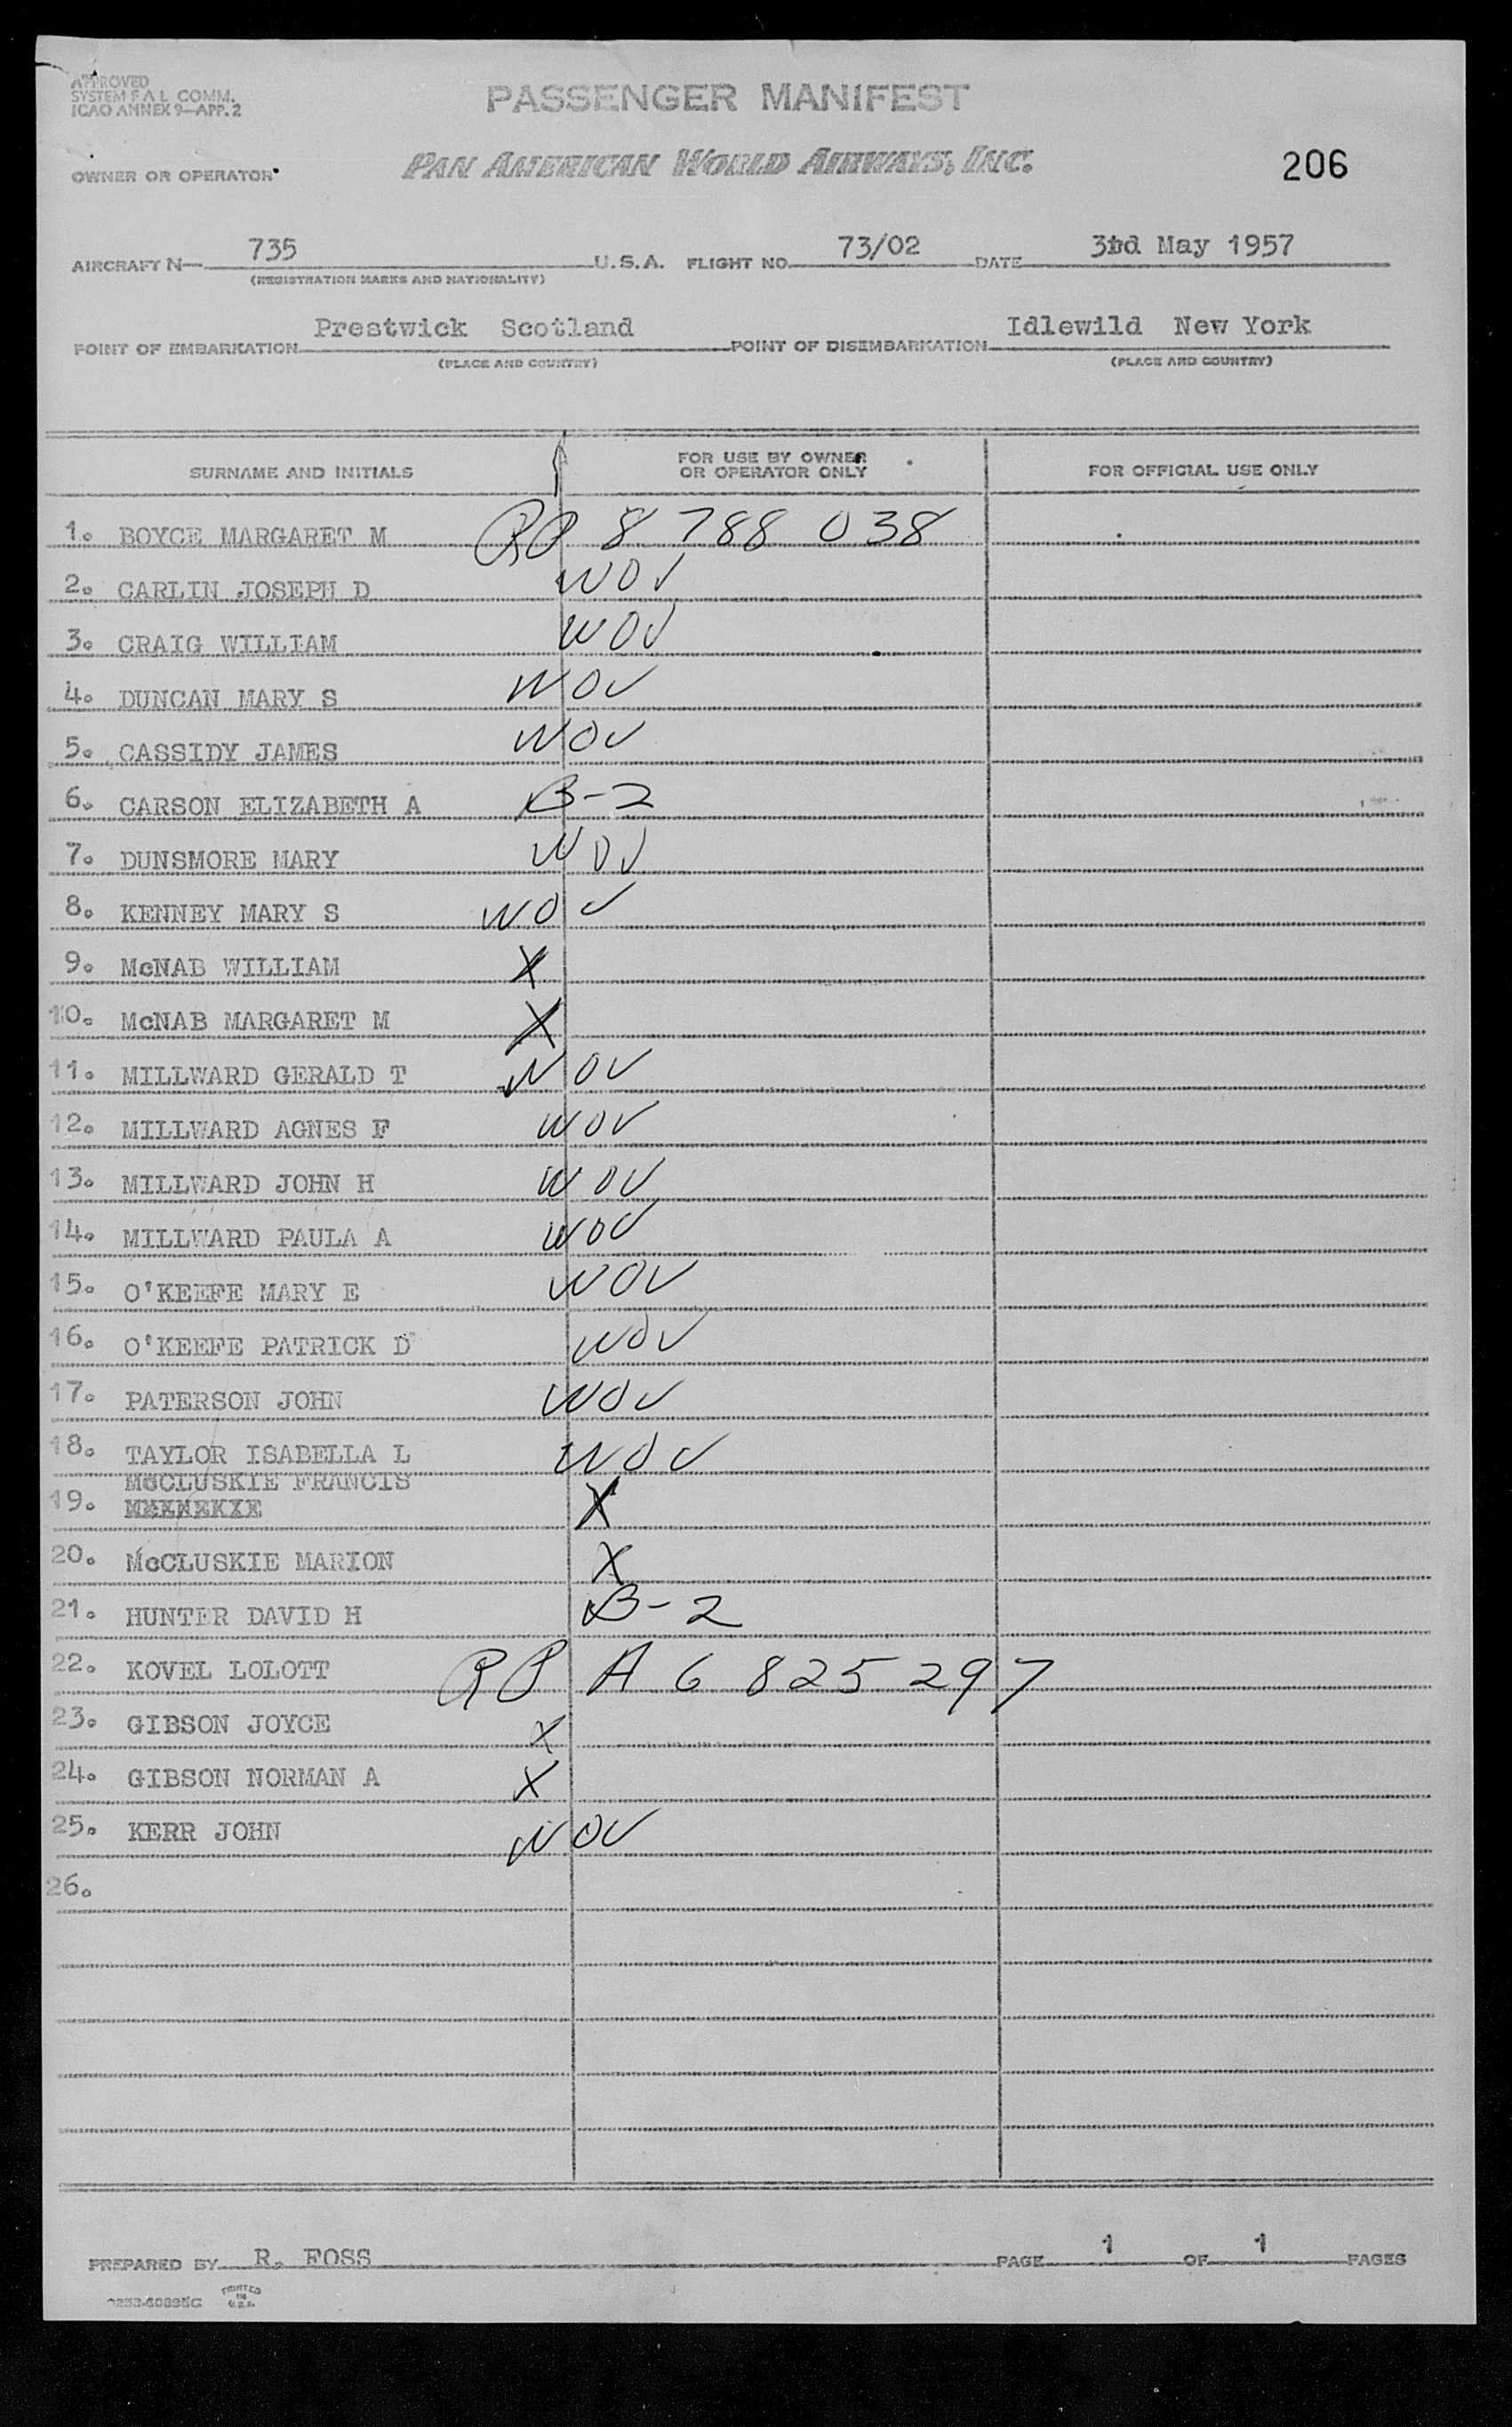 APPROVED
SYSTEM F A L COMM.
ICAO ANNEX 9—APP. 2
PASSENGER MANIFEST
OWNER OR OPERATOR
PAN AMERICAN WORLD AIRWAYS, INC.
206
AIRCRAFT N— 735 U.S.A. FLIGHT NO. 73/02 DATE 3rd May 1957
(REGISTRATION MARKS AND NATIONALITY)
POINT OF EMBARKATION Prestwick Scotland POINT OF DISEMBARKATION Idlewild New York
(PLACE AND COUNTRY) (PLACE AND COUNTRY)
SURNAME AND INITIALS FOR USE BY OWNER OR OPERATOR ONLY FOR OFFICIAL USE ONLY
1. BOYCE MARGARET M RP 8 788 038
2. CARLIN JOSEPH D WOV
3. CRAIG WILLIAM WOV
4. DUNCAN MARY S WOV
5. CASSIDY JAMES WOV
6. CARSON ELIZABETH A B-2
7. DUNSMORE MARY WOV
8. KENNEY MARY S WOV
9. McNAB WILLIAM X
10. McNAB MARGARET M X
11. MILLWARD GERALD T WOV
12. MILLWARD AGNES F WOV
13. MILLWARD JOHN H WOV
14. MILLWARD PAULA A WOV
15. O'KEEFE MARY E WOV
16. O'KEEFE PATRICK D WOV
17. PATERSON JOHN WOV
18. TAYLOR ISABELLA L WOV
McCLUSKIE FRANCIS
19. X
20. McCLUSKIE MARION X
21. HUNTER DAVID H B-2
22. KOVEL LOLOTT RP A 6 825 297
23. GIBSON JOYCE X
24. GIBSON NORMAN A X
25. KERR JOHN WOV
26.
PREPARED BY R. FOSS PAGE 1 OF 1 PAGES
PRINTED
IN
U.S.A.